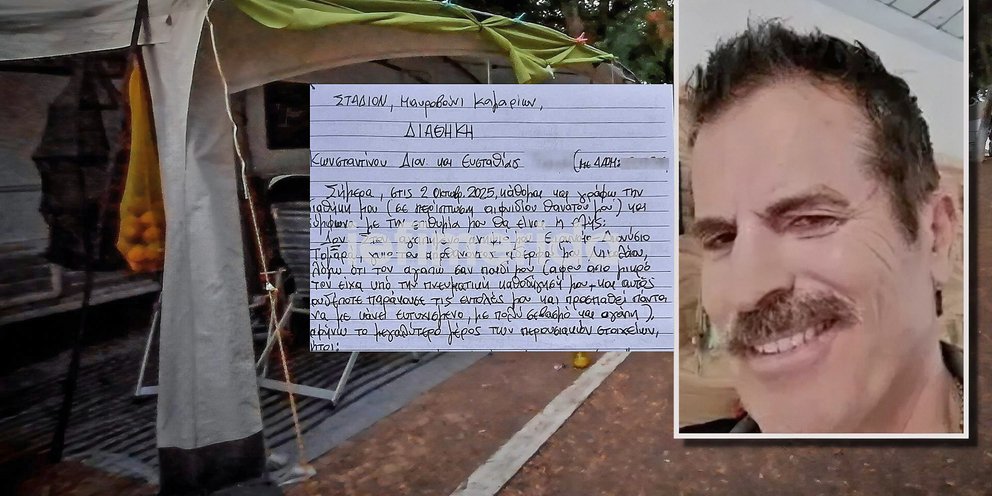 ΣΤΑΔΙΟΝ, Μαυροβούνι Καμαρίων,
ΔΙΑΘΗΚΗ
Κωνσταντίνου Διον. και Ευσταθίας (με ΑΦΜ:
Σήμερα, στις 2 Οκτωβ. 2025, κάθομαι και γράφω την
μου (σε περίπτωση αιφνιδίου θανάτου μου) και
με την επιθυμία μου θα είναι η εξής:
Διονύσιο
λόγω ότι τον αγαπώ σαν παιδί μου (αφού από μικρό
τον είχα υπό την πνευματική καθοδήγησή μου, και αυτός
ουδέποτε παράκουσε τις εντολές μου και προσπαθεί πάντα
να με κάνει ευτυχισμένο, με πολύ σεβασμό και αγάπη),
αφήνω το μεγαλύτερο μέρος των περιουσιακών στοιχείων,
ήτοι: